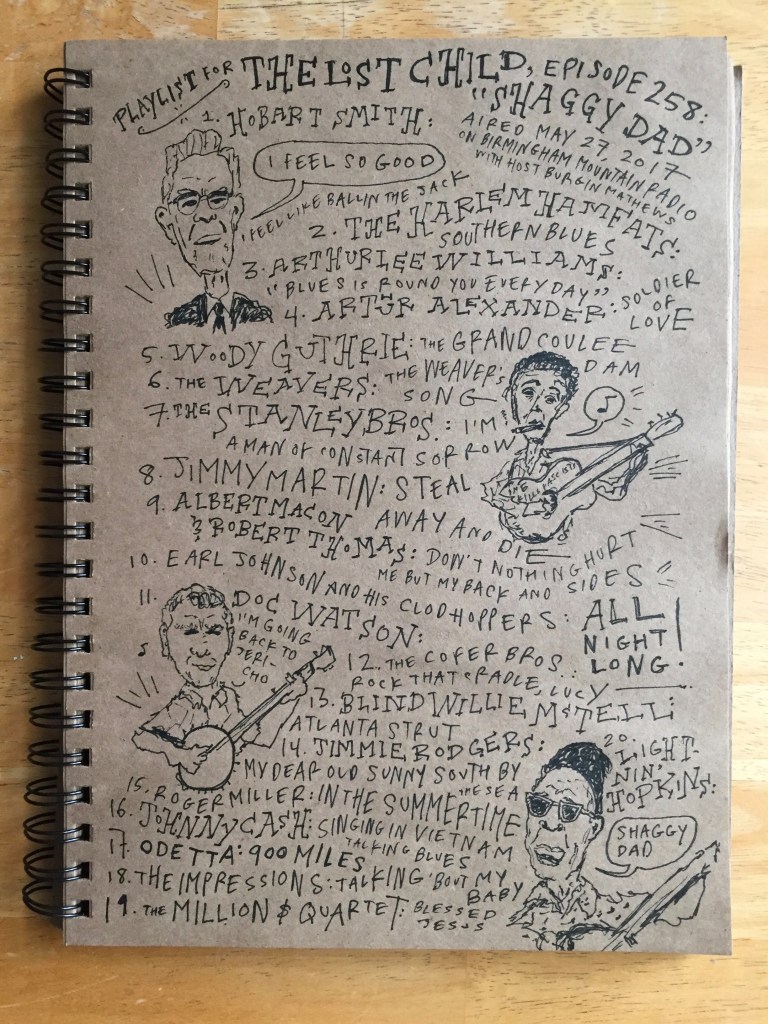 PLAYLIST FOR THE LOST CHILD, EPISODE 258:
"SHAGGY DAD"
AIRED MAY 27, 2017
ON BIRMINGHAM MOUNTAIN RADIO
WITH HOST BURGIN MATHEWS
1. HOBART SMITH:
I FEEL SO GOOD
I FEEL LIKE BALLIN THE JACK
2. THE HARLEM HAMFATS:
SOUTHERN BLUES
3. ARTHUR LEE WILLIAMS:
"BLUES IS ROUND YOU EVERY DAY"
4. ARTUR ALEXANDER: SOLDIER
OF
LOVE
5. WOODY GUTHRIE: THE GRAND COULEE
DAM
6. THE WEAVERS: THE WEAVER'S
SONG
7. THE STANLEY BROS.: I'M
A MAN OF CONSTANT SORROW
8. JIMMY MARTIN: STEAL
AWAY AND DIE
9. ALBERT MACON
& ROBERT THOMAS: DON'T NOTHING HURT
ME BUT MY BACK AND SIDES
10. EARL JOHNSON AND HIS CLODHOPPERS: ALL
NIGHT
LONG!
11. DOC WATSON:
I'M GOING
BACK TO
JERI-
CHO
12. THE COFER BROS.:
ROCK THAT CRADLE, LUCY
13. BLIND WILLIE McTELL:
ATLANTA STRUT
14. JIMMIE RODGERS:
MY DEAR OLD SUNNY SOUTH BY
THE SEA
15. ROGER MILLER: IN THE SUMMERTIME
16. JOHNNY CASH: SINGING IN VIETNAM
TALKING BLUES
17. ODETTA: 900 MILES
18. THE IMPRESSIONS: TALKING 'BOUT MY
BABY
19. THE MILLION $ QUARTET: BLESSED
JESUS
20. LIGHT-
NIN'
HOPKINS:
SHAGGY
DAD